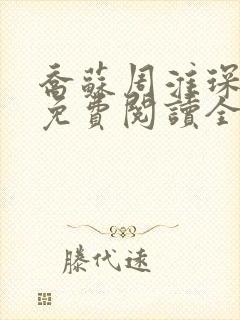 喬蘇周淮琛
免費閱讀全
滕代遠